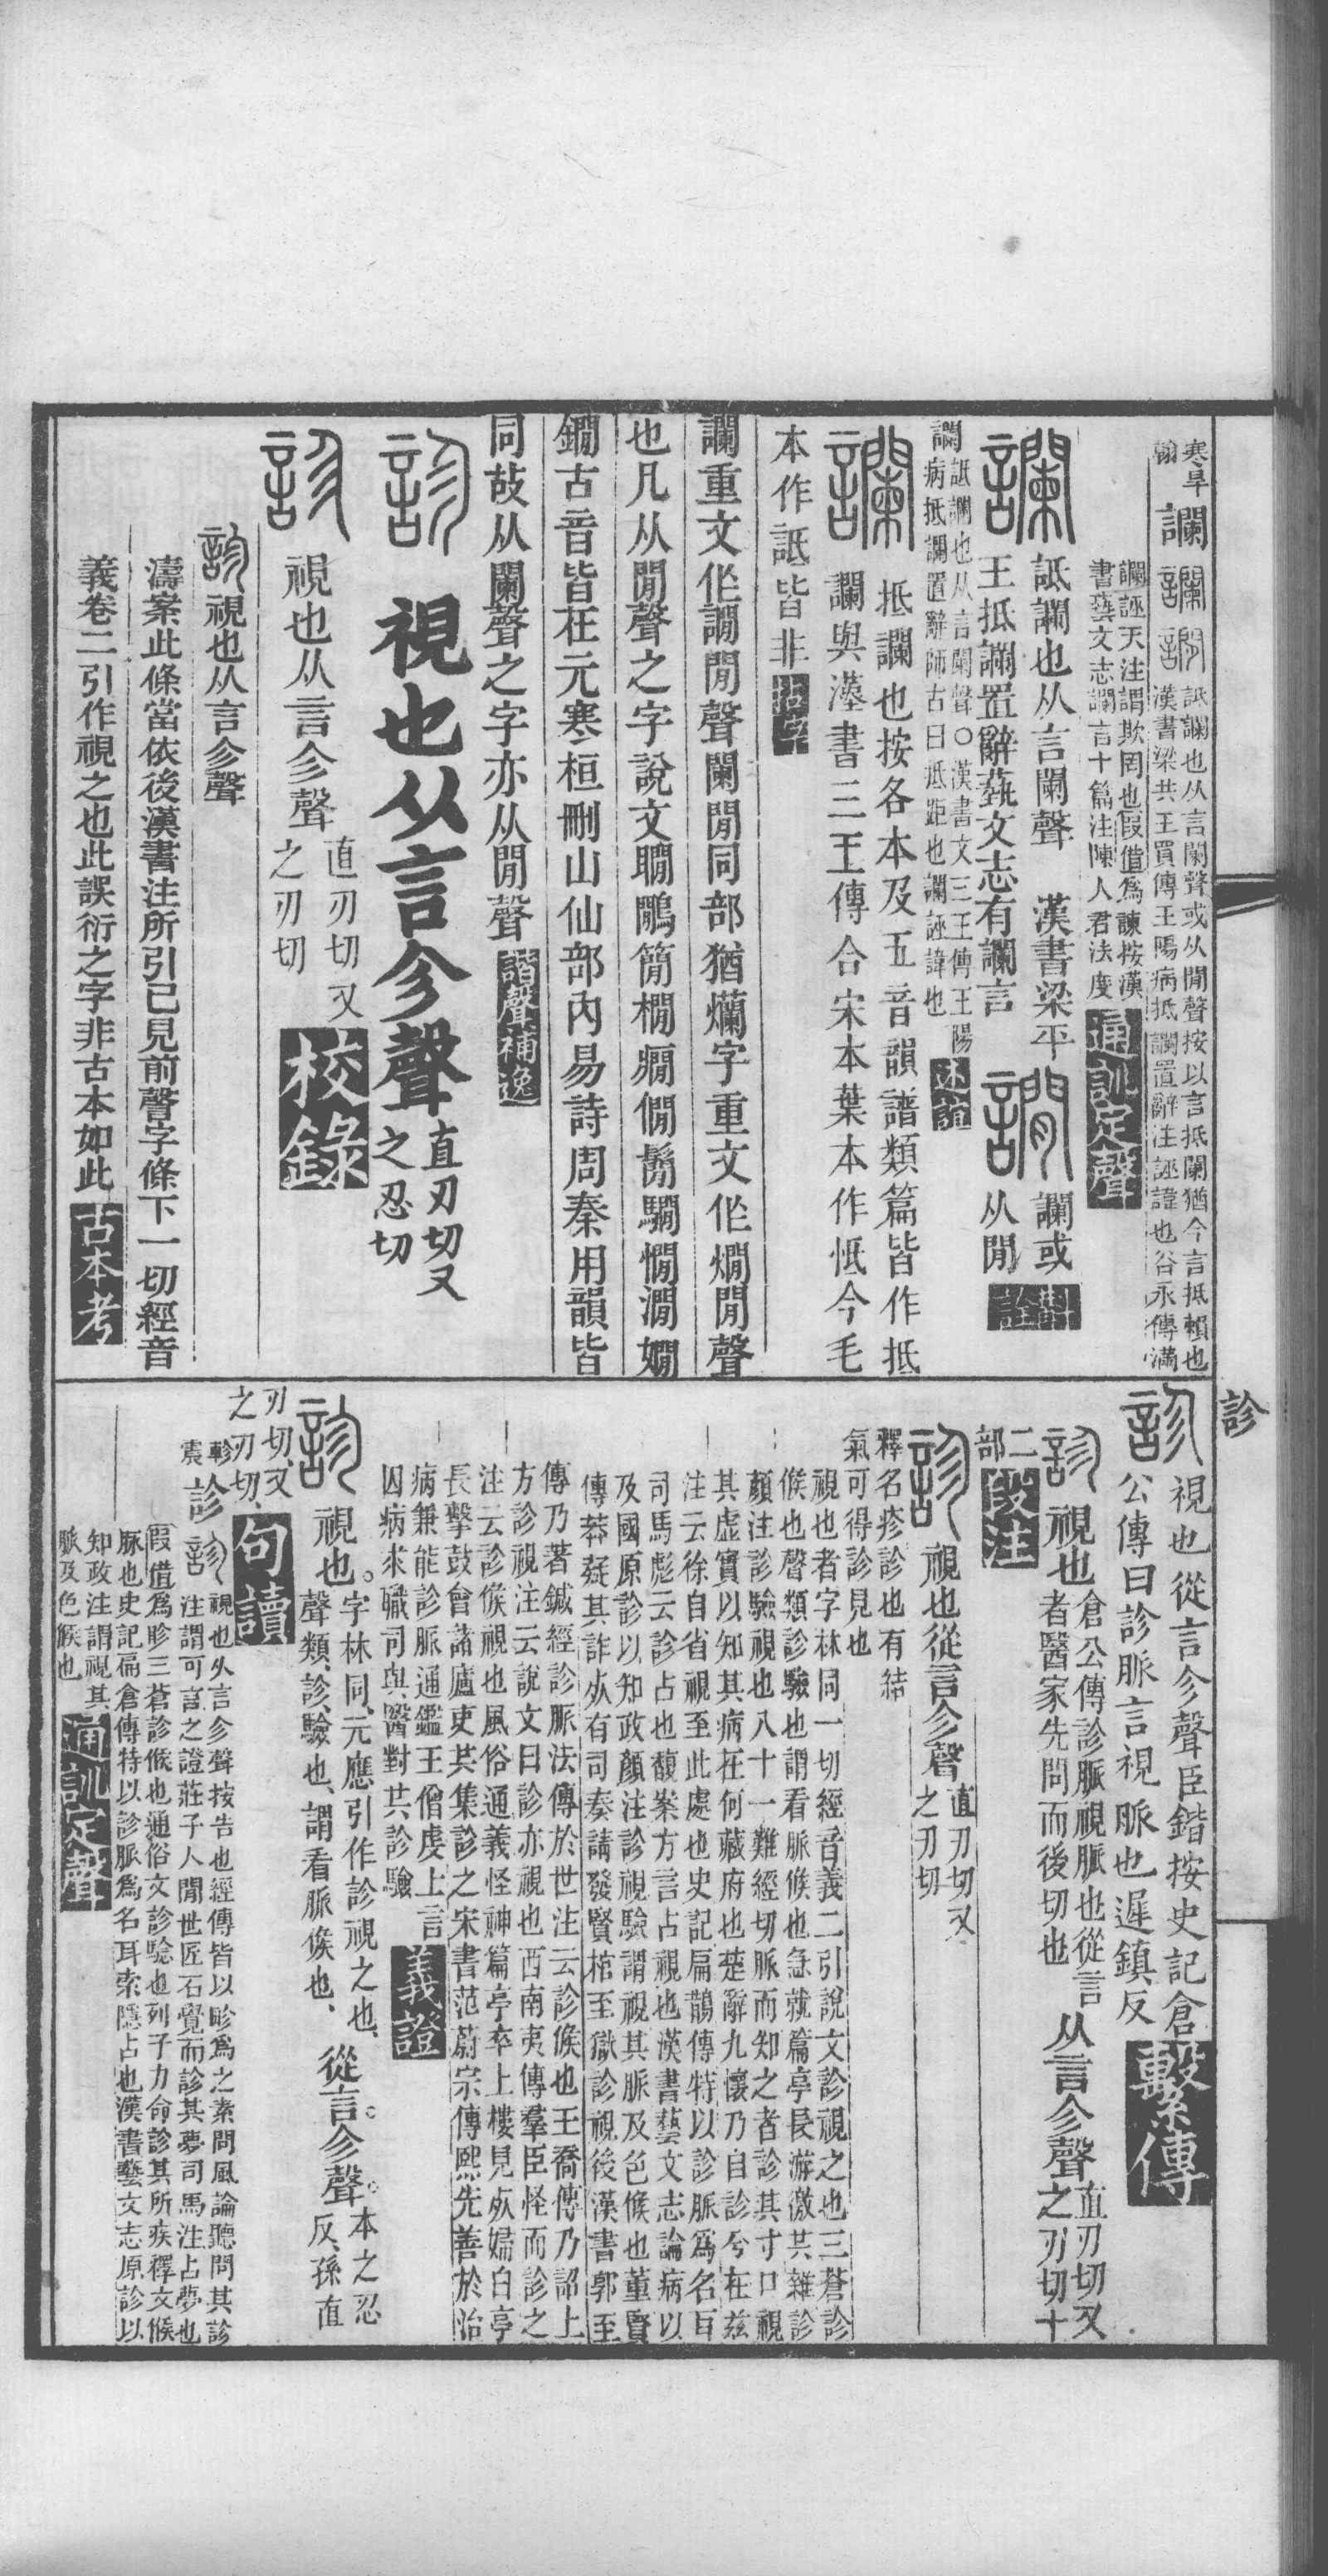 寒旱
翰
讕
讕
譋
詆讕也从言闌聲或从閒聲按以言抵闌猶今言抵賴也
漢書梁共王買傳王陽病抵讕置辭注誣諱也谷永傳滿
讕誣天注謂欺罔也假借爲諫按漢
書藝文志讕言十篇注陳人君法度
通訓定聲
讕
詆讕也从言闌聲 漢書梁平
王抵讕置辭蓺文志有讕言
譋
讕或
从閒
斠詮
讕
詆讕也从言闌聲〇漢書文三王傳王陽
病抵讕置辭師古曰抵距也讕誣諱也
述誼
讕
抵讕也按各本及五音韻譜類篇皆作抵
讕與漢書三王傳合宋本葉本作怟今毛
本作詆皆非
拈字
讕重文作譋閒聲闌閒同部猶爛字重文作燗閒聲
也凡从閒聲之字說文瞷鷴簡橺癎僩鬜驨憪澗嫺
鐗古音皆在元寒桓刪山仙部內易詩周秦用韻皆
同故从闌聲之字亦从閒聲
諧聲補逸
診
視也从言㐱聲
直刃切又
之忍切
診
視也从言㐱聲
直刃切又
之刃切
校錄
診
視也从言㐱聲
濤案此條當依後漢書注所引已見前謦字條下一切經音
義卷二引作視之也此誤衍之字非古本如此
古本考
診
診
視也從言㐱聲臣鍇按史記倉
公傳曰診脈言視脈也遲鎮反
繫傳
診
視也
倉公傳診脈視脈也從言
者醫家先問而後切也
从言㐱聲
直刃切又
之刃切十
二
部
段注
診
視也從言㐱聲
直刃切又
之刃切
釋名疹診也有結
氣可得診見也
視也者字林同一切經音義二引說文診視之也三蒼診
候也聲類診驗也謂看脈候也急就篇亭長游激共雜診
顏注診驗視也八十一難經切脈而知之者診其寸口視
其虛實以知其病在何藏府也楚辭九懷乃自診兮在茲
注云徐自省視至此處也史記扁鵲傳特以診脈爲名耳
司馬彪云診占也馥案方言占視也漢書藝文志論病以
及國原診以知政顏注診視驗謂視其脈及色候也董賢
傳莽疑其詐死有司奏請發賢棺至獄診視後漢書郭至
傳乃著鍼經診脈法傳於世注云診候也王喬傳乃詔上
方診視注云說文曰診亦視也西南夷傳羣臣怪而診之
注云診候視也風俗通義怪神篇亭卒上樓見死婦白亭
長擊鼓會諸廬吏共集診之宋書范蔚宗傳熙先善於治
病兼能診脈通鑑王僧虔上言
因病求職司與醫對共診驗
義證
診
視也。
字林同、元應引作診視之也、
聲類、診、驗也、謂看脈候也、
從言。㐱聲。
本之忍
反、孫直
刃切、又
之刃切、
句讀
軫
震
診
診
視也从言㐱聲按告也經傳皆以眕爲之素問風論聽問其診
注謂可言之證莊子人閒世匠石覺而診其夢司馬注占夢也
假借爲眕三蒼診候也通俗文診驗也列子力命診其所疾釋文候
脈也史記扁倉傳特以診脈爲名耳索隱占也漢書藝文志原診以
知政注謂視其
脈及色候也
通訓定聲